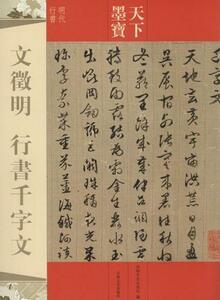 天下
墨寶
明代
行書
文徵明 行書千字文
天地玄黃宇宙洪荒日月盈
昃辰宿列張寒來暑往秋收
冬藏閏餘成歲律呂調陽雲
騰致雨露結為霜金生麗水玉
出崑岡劍號巨闕珠稱夜光菓
珍李柰菜重芥薑海鹹河淡